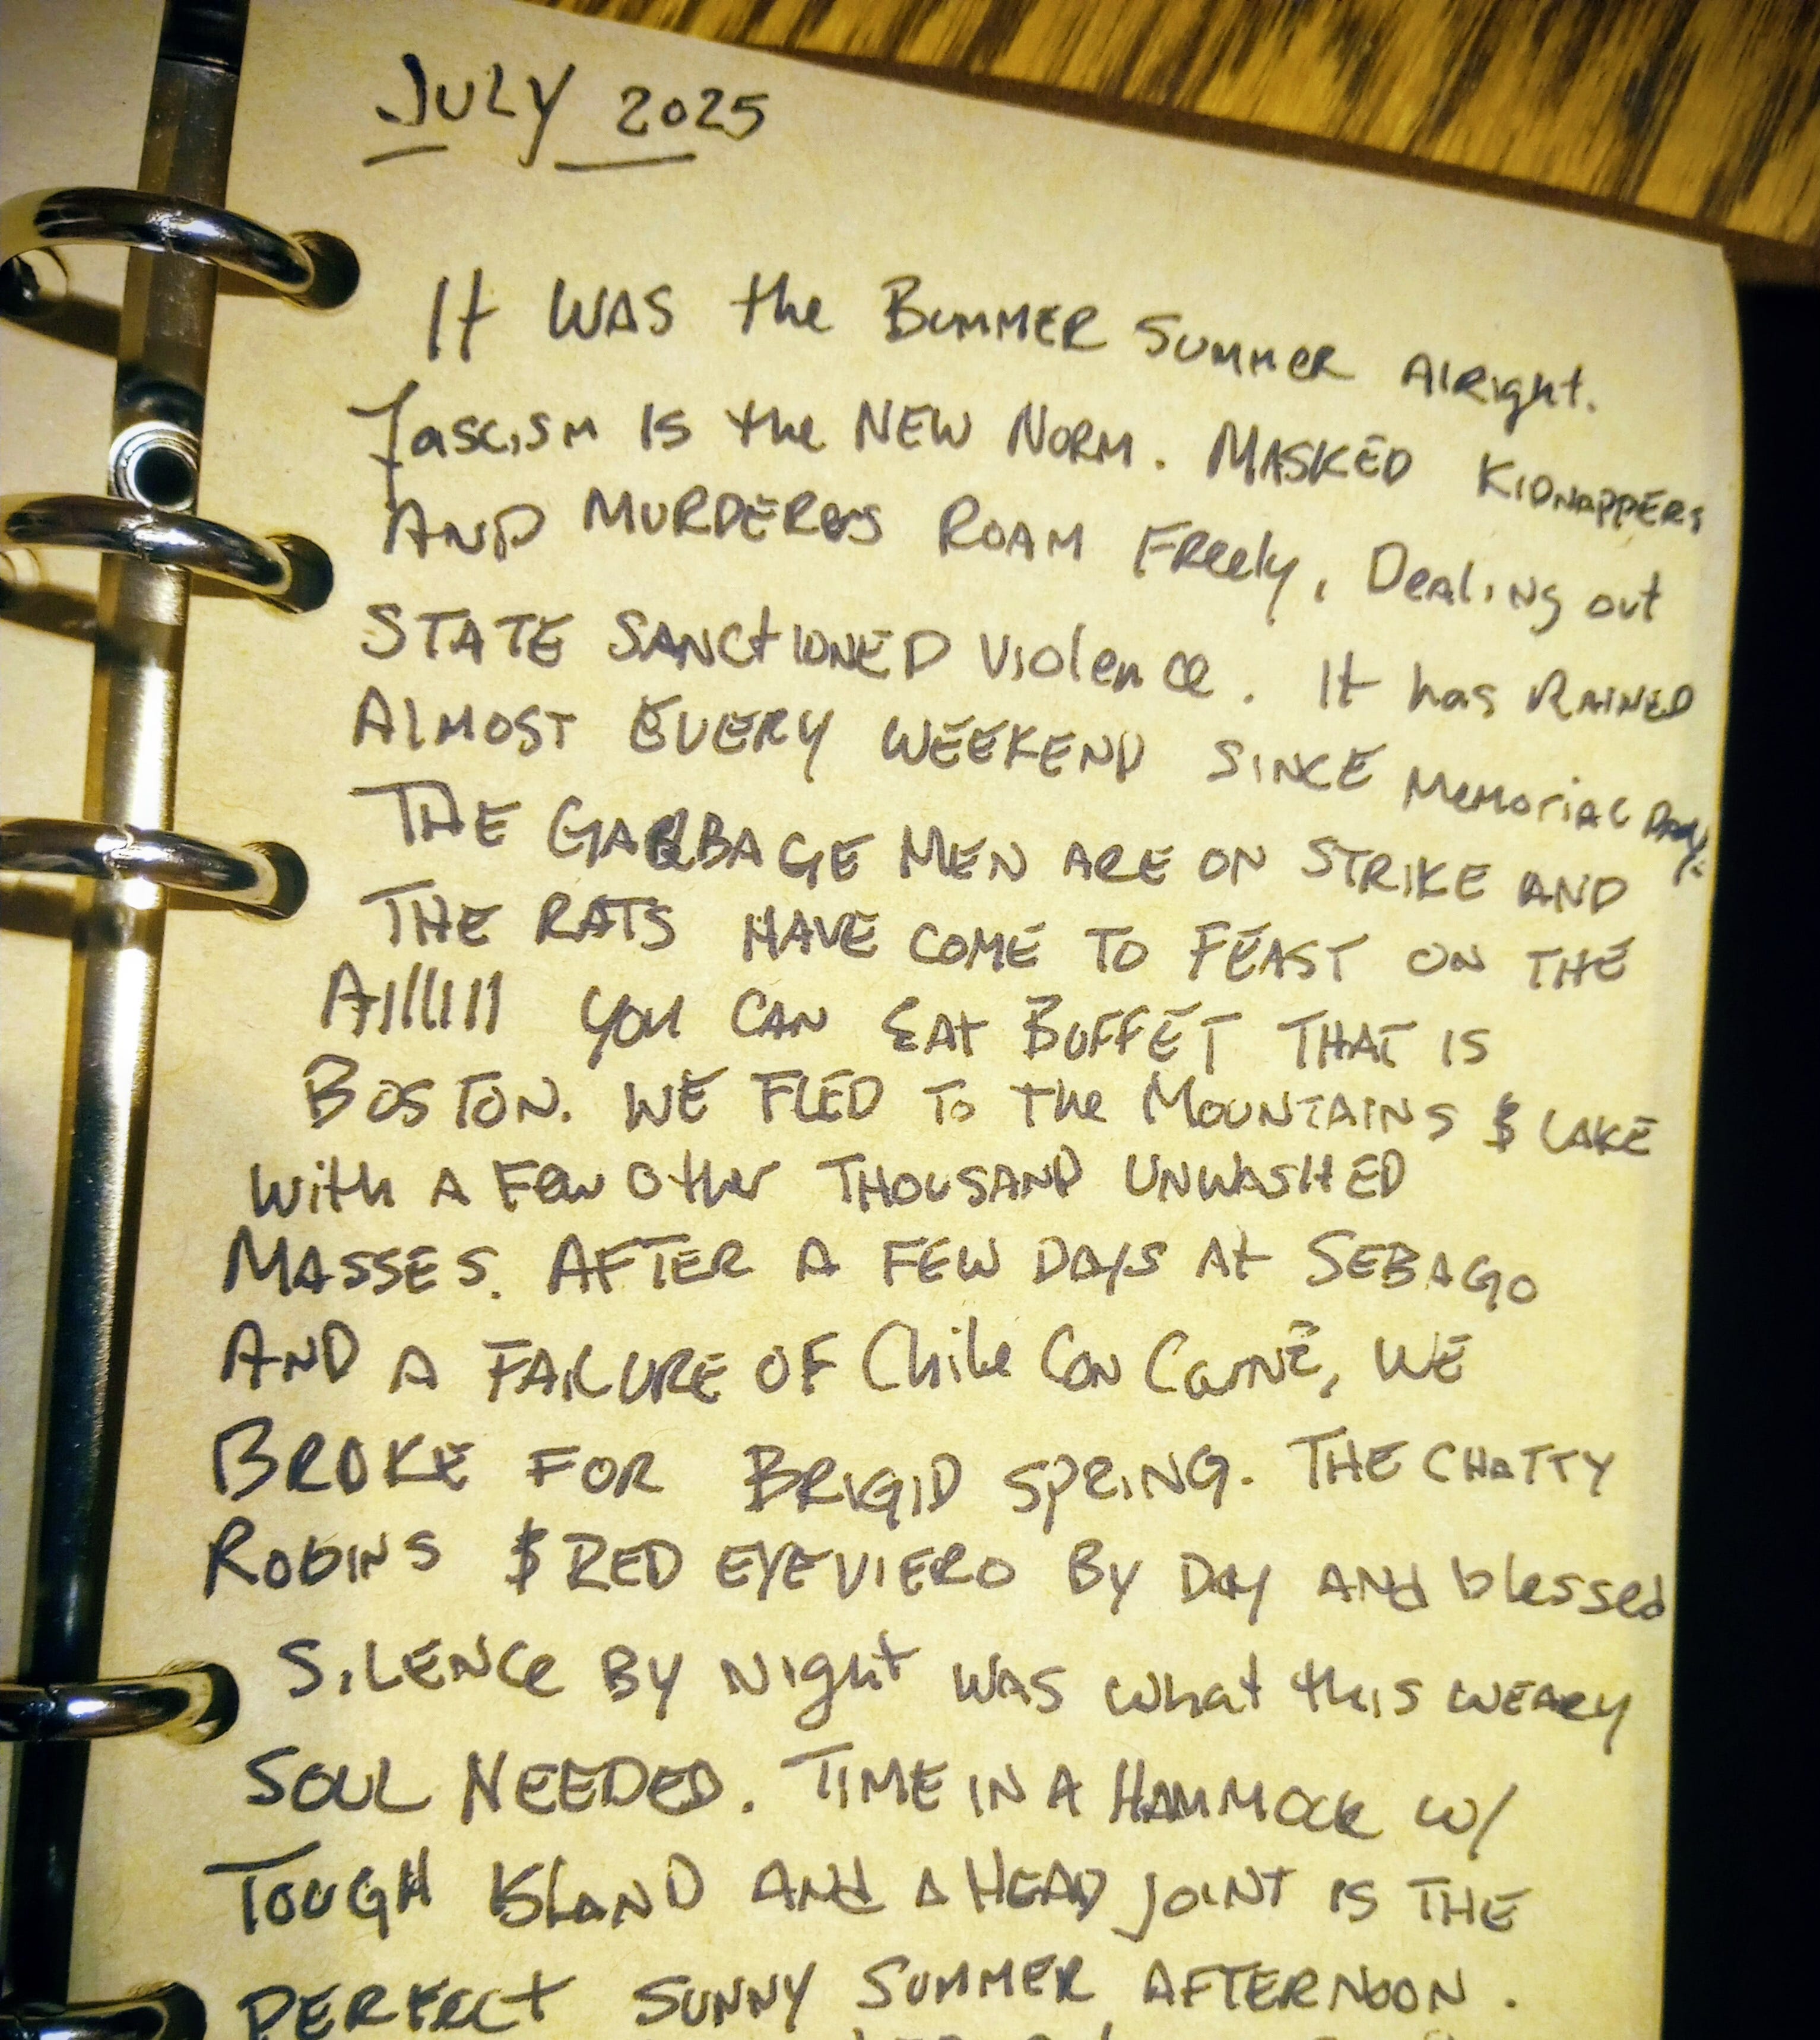 JULY 2025
It WAS the BUMMER SUMMER AlRight.
Fascism IS the NEW NORM. MASKED KIDNAPPERS
AND MURDERERS ROAM FREELY, DEALING out
STATE SANCTIONED VIOlence. It has RAINED
AlMOST EVERY WEEKEND SINCE MEMORIAL DAY.
THE GARBAGE MEN ARE ON STRIKE AND
THE RATS HAVE COME TO FEAST ON THE
AllllIll YOU CAN EAt BUFFET THAT IS
BOSTON. WE FLED To the MOUNTAINS & LAKE
With A FEW Other THOUSAND UNWASHED
MASSES. AFTER A FEW DAYS At SEBAGO
AND A FAILURE OF Chile Con Carné, WE
BROKE FOR BRIGID SPRING. THE CHATTY
ROBINS & RED EYE VIERO BY DAY ANd blessed
SILENCe BY NIght WAS what this WEARY
SOUL NEEDED. TIME IN A HAMMOCK W/
TOUGH ISLAND ANd A HEAD JOINT IS THE
PERFECT SUNNY SUMMER AFTERNOON.